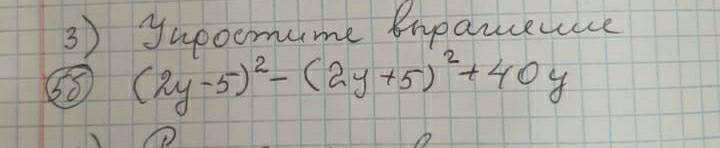 3) Упростите выражение
5б (2y-5)² - (2y+5)² + 40y